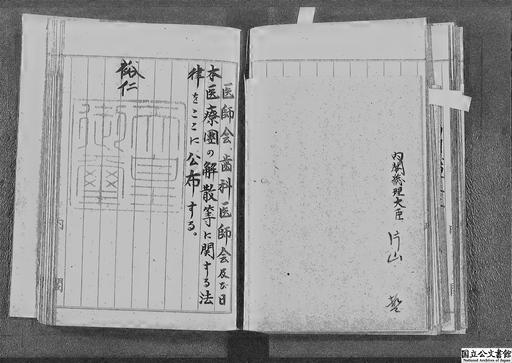 医師会、歯科医師会及び日
本医療團の解散等に関する法
律をここに公布する。
裕仁
天皇
御璽
内閣総理大臣 片山 哲
内閣
国立公文書館
National Archives of Japan